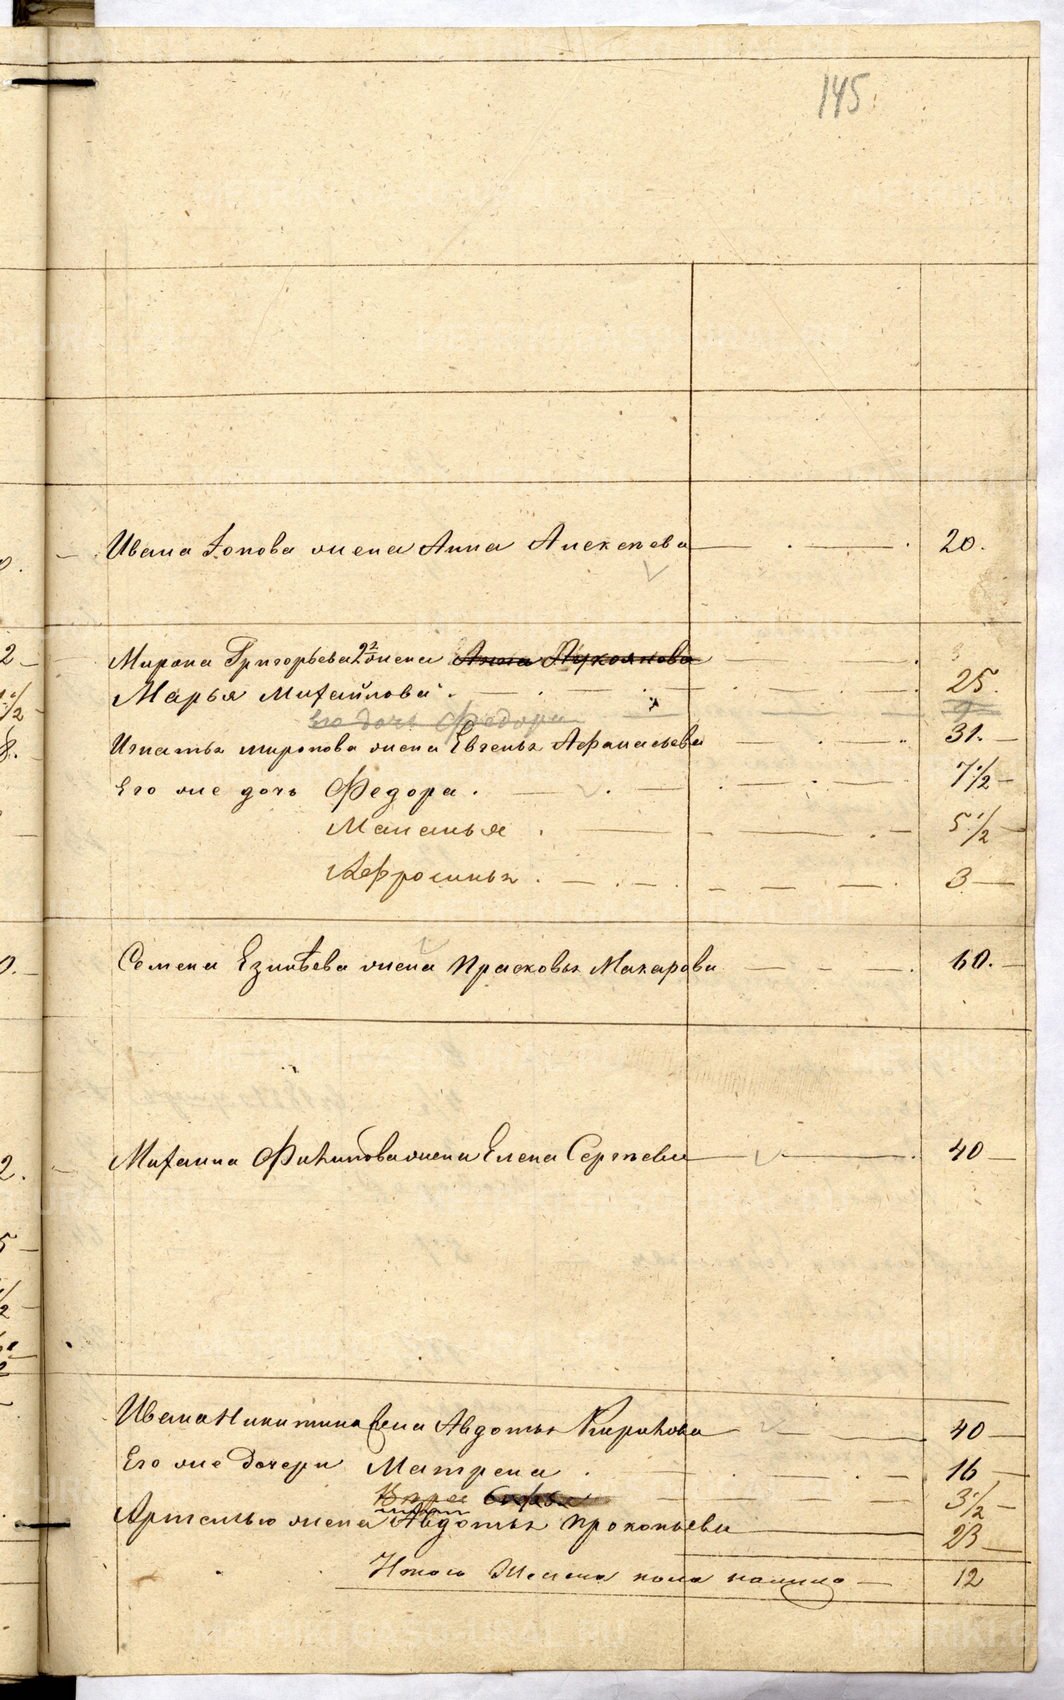 145.
Ивана Іонова жена Анна Алексеева 20.
Мирона Григорьева 2я жена Анна Лукоянова
Марья Михайлова 25.
Его дочь Федора 9
Игнатья миронова жена Евгенья Афанасьева 31.
Его же дочь Федора 7 1/2
Маланья 5 1/2
Афросинья 3
Семена жена Прасковья Макарова 60.
Михаила Филипова жена Елена Сергеева 40
Ивана Никитина жена Авдотья Кирилова 40
Его же дочери Матрена 16
Софья 3 1/2
жена Авдотья Прокопьева 23
Итого Женска пола налицо 12